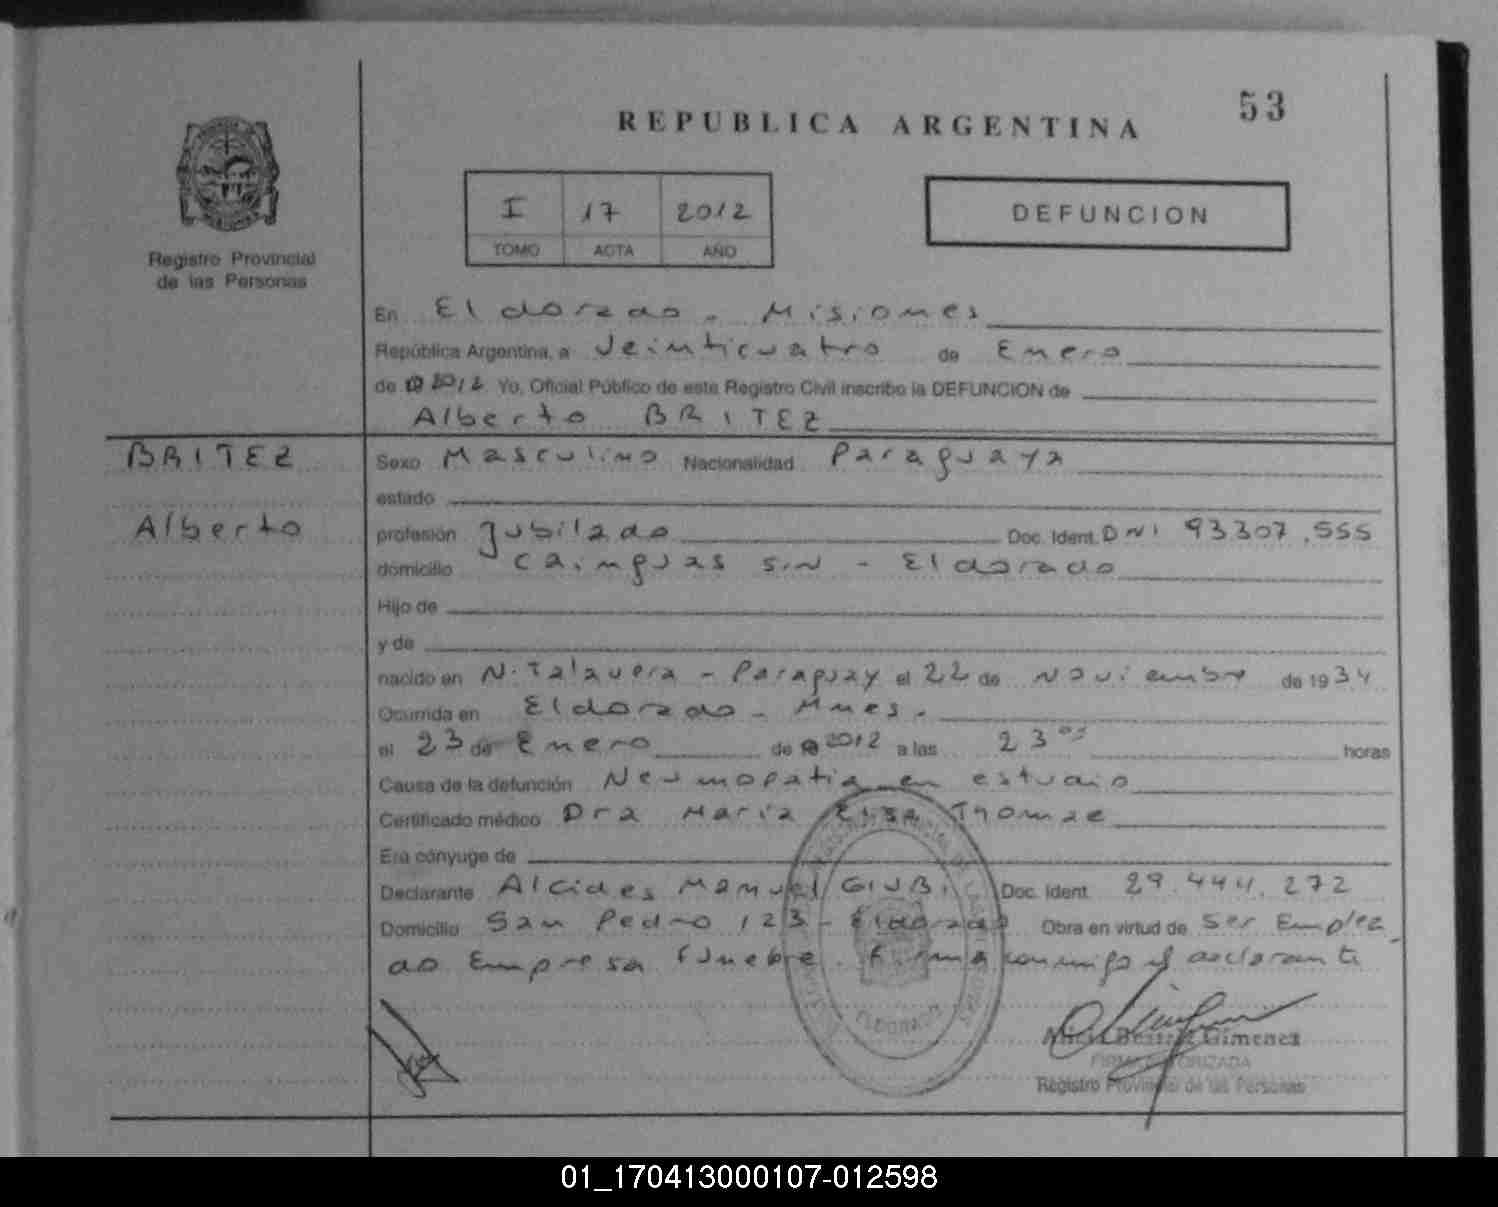 53
REPUBLICA ARGENTINA
I 17 2012
TOMO ACTA AÑO
DEFUNCION
Registro Provincial
de las Personas
En Eldorado. Misiones
República Argentina, a Veinticuatro de Enero
de 19 2012 Yo, Oficial Público de este Registro Civil inscribo la DEFUNCION de
Alberto BRITEZ
BRITEZ
Alberto
Sexo Masculino Nacionalidad Paraguaya
estado
profesión Jubilado Doc. Ident. DNI 93307.555
domicilio Cainguas S/N - Eldorado
Hijo de
y de
nacido en N. Talavera - Paraguay el 22 de Noviembre de 1934
Ocurrida en Eldorado - Mnes.
el 23 de Enero de 19 2012 a las 23 05 horas
Causa de la defunción Neumopatia en estudio
Certificado médico Dra Maria Elisa Thomae
Era cónyuge de
Declarante Alcides Manuel GIUBI Doc. Ident. 29.444.272
Domicilio San Pedro 123 - Eldorado Obra en virtud de Ser Emplea
do Empresa Funebre. Firma conmigo el declarante
ELDORADO
Alicia Beatriz Gimenez
FIRMA AUTORIZADA
Registro Provincial de las Personas
01_170413000107-012598